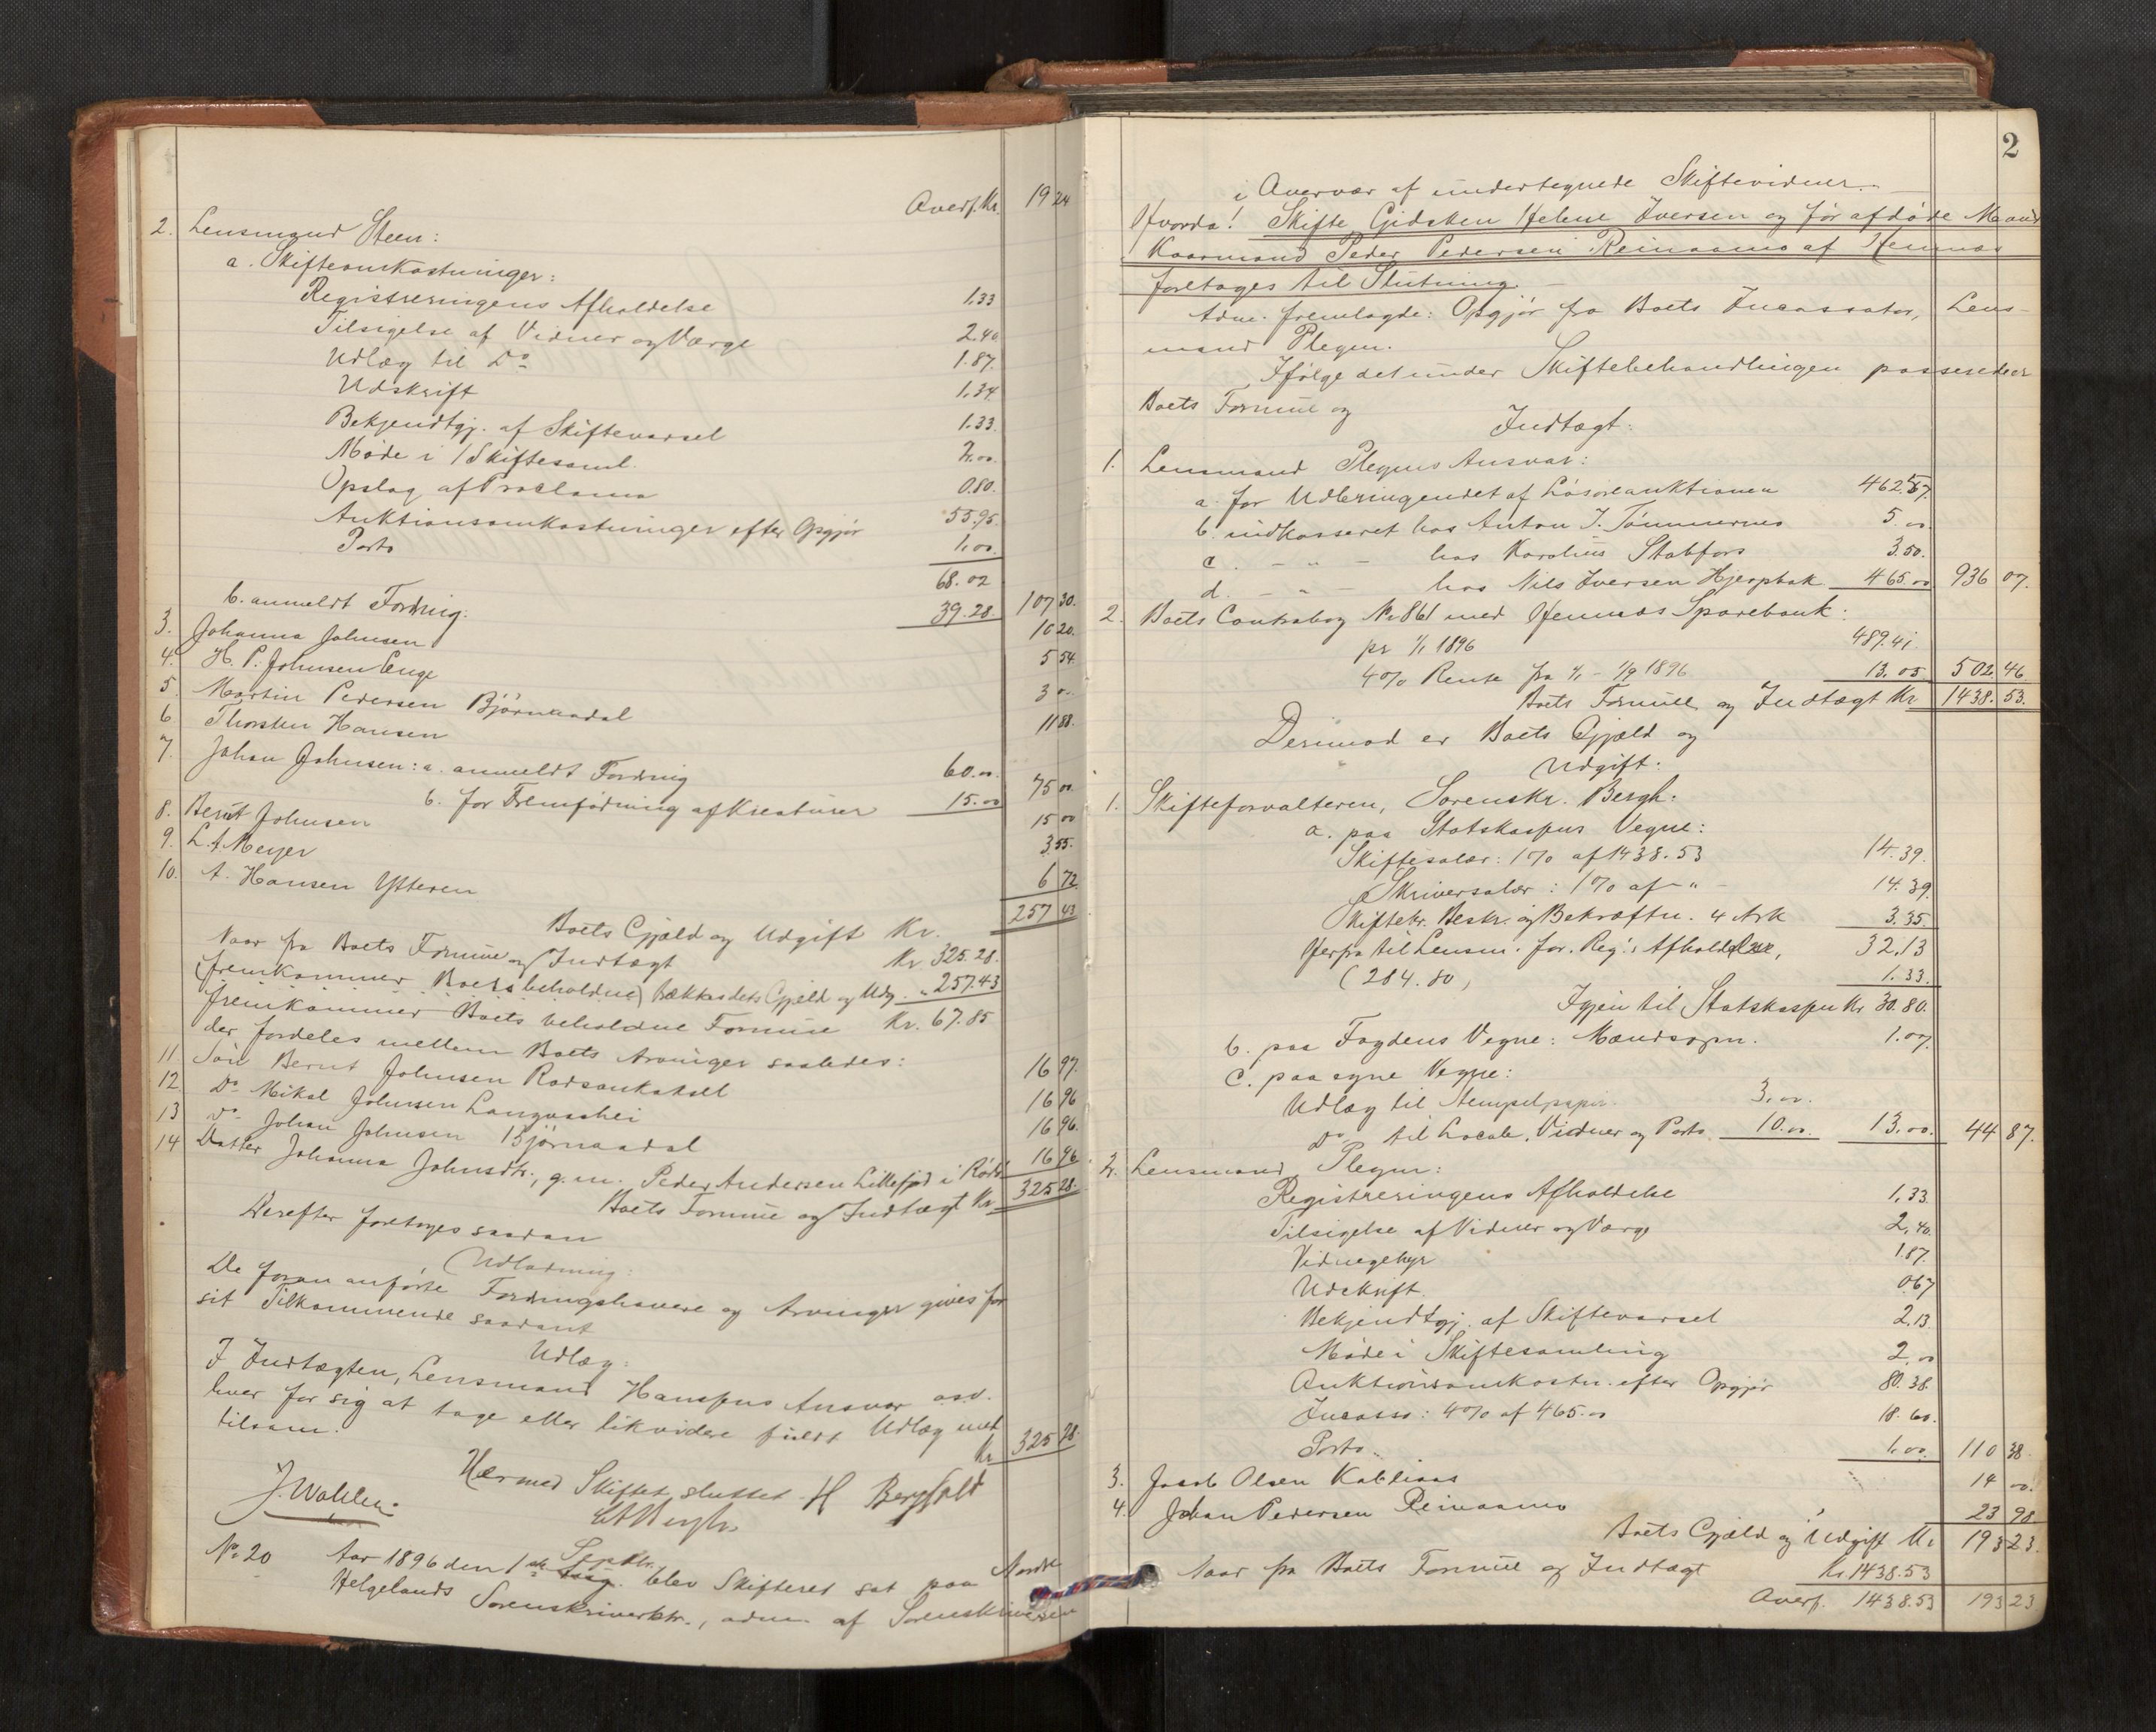 Overf. Kr. 19 24
2. Lensmand Steen:
a. Skifteomkostninger:
Registreringens Afholdelse 1.33
Tilsigelse af Vidner og Værge 2.40
Udlæg til Do 1.87.
Udskrift 1.34
Bekjendtgj. af Skiftevarsel 1.33.
Møde i 1 Skiftesaml. 2.00
Opslag af Proclama 0.80.
Auktionsomkostninger efter Opgjør 55.95.
Porto 1.00
68.02
b. anmeldt Fordring: 39.28 107 30.
3. Johanna Johnsen 10 20.
4. H. P. Johnsen Enge 5 54.
5. Martin Pedersen Bjørnaadal 3 00
6. Thorsten Hansen 11 88.
7. Johan Johnsen: a. anmeldt Fordring 60.00
b. for Fremfødning af Kreaturer 15.00 75 00
8. Bernt Johnsen 15 00
9. L. A. Meyer 3 55.
10. A. Hansen Ytteren 6 72.
Boets Gjæld og Udgift Kr. 257 43
Naar fra Boets Formue og Indtægt Kr. 325.28.
(fremkommer Boets beholdne) trækkes dets Gjæld og Udg. " 257.43
fremkommer Boets beholdne Formue Kr. 67.85
der fordeles mellem Boets Arvinger saaledes:
11. Søn Bernt Johnsen 16 97.
12. Do Mikal Johnsen Langvashei 16 96
13. Do Johan Johnsen Bjørnaadal 16 96.
14. Datter Johanna Johnsdtr., g. m. Peder Andersen Lillefjd i Rødø 16 96
Boets Formue og Indtægt Kr. 325 28.
Derefter foretoges saadan
Udlodning:
De foran anførte Fordringshavere og Arvinger gives for
sit Tilkommende saadant
Udlæg:
I Indtægten, Lensmand Ansvar osv.
hver for sig at tage eller likvidere fuldt Udlæg med
tilsam. Kr. 325 28.
Hermed Skiftet sluttet
J. Wahlen H Bergfald
No 20 Aar 1896 den 1ste Septbr. blev Skifteret sat paa Nordre
Helgelands Sorenskriverktr., adm. af Sorenskriveren
2
i Overvær af undertegnede Skiftevidner.
Hvorda! Skifte Gidsken Helene Iversen og før afdøde Mand
Kaarmand Peder Pedersen Reinaamo af Hemnæs
foretages til Slutning.
Adm. fremlagde: Opgjør fra Boets Incassator, Lens-
mand Plegen.
Ifølge det under Skiftebehandlingen passerede er
Boets Formue og
Indtægt:
1. Lensmand Plegens Ansvar:
a. for Udbringendet af Løsøreauktionen 462.57.
b. indkasseret hos Anton J. Tømmernes 5.00
c. - " - hos Karolius Stabfors 3.50.
d. - " - hos Nils Iversen Hjerpbak 465.00 936 07.
2. Boets Contrabog No 861 med Hemnæs Sparebank:
pr 1/1 1896 489.41
4% Rente fra 1/1 - 1/9 1896 13.05 502 46.
Boets Formue og Indtægt Kr 1438. 53.
Derimod er Boets Gjæld og
Udgift:
1. Skifteforvalteren, Sorenskr. Bergh:
a. paa Statskassens Vegne:
Skiftesalær: 1% af 1438.53 14.39.
Skriversalær: 1% af - " - 14.39.
Skiftebr. Beskr. og Bekræftn. 4 Ark 3.35.
Herfra til Lensm. for Reg.s Afholdelse, 32.13
(284.80) 1.33.
Igjen til Statskassen Kr 30.80.
b. paa Fogdens Vegne: Mændsopn. 1.07.
c. paa egne Vegne:
Udlæg til Stempelpapir 3.00.
Do til Locale, Vidner og Porto 10.00. 13.00. 44 87.
2. Lensmand Plegen:
Registreringens Afholdelse 1.33
Tilsigelse af Vidner og Værge 2.40.
Vidnegebyr 1.87.
Udskrift 0.67
Bekjendtgj. af Skiftevarsel 2.13.
Møde i Skiftesamling 2.00
Auktionsomkostn. efter Opgjør 80.38.
Incasso: 4% af 465.00 18.60.
Porto 1.00. 110 38.
3. Jacob Olsen 14 00.
4. Johan Pedersen Reinaamo 23 98
Boets Gjæld og Udgift Kr 193 23.
Naar fra Boets Formue og Indtægt Kr. 1438.53
Overf. 1438.53 193 23